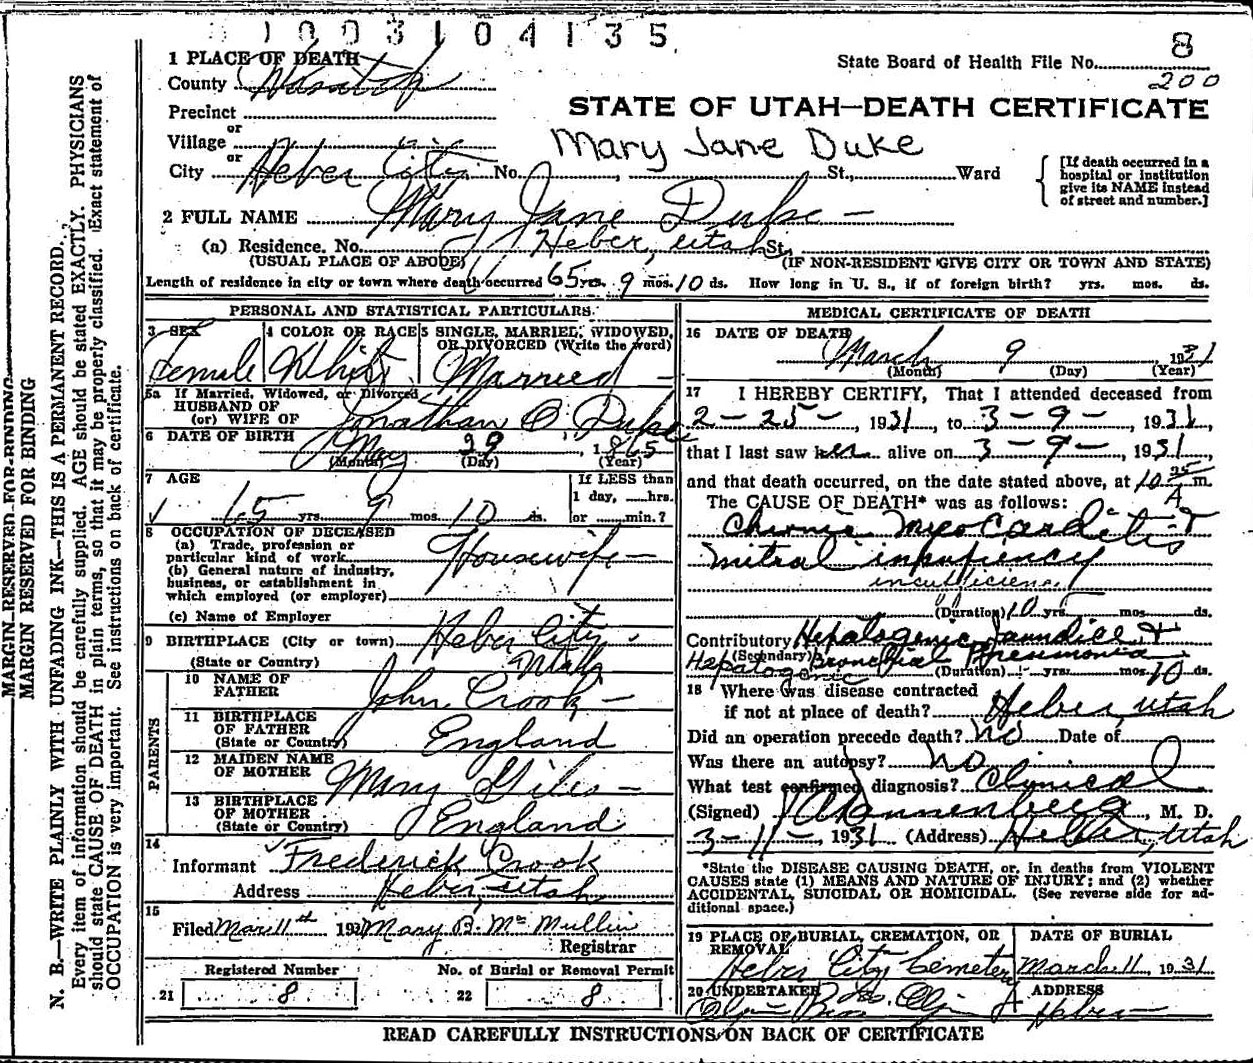 1003104135
8
State Board of Health File No.
200
1 PLACE OF DEATH
County Wasatch
STATE OF UTAH—DEATH CERTIFICATE
Precinct
or
Village
Mary Jane Duke
or
City Heber City No. , St., Ward
[If death occurred in a hospital or institution give its NAME instead of street and number.]
2 FULL NAME Mary Jane Duke
(a) Residence. No. Heber, Utah St.,
(USUAL PLACE OF ABODE) (IF NON-RESIDENT GIVE CITY OR TOWN AND STATE)
Length of residence in city or town where death occurred 65 yrs. 9 mos. 10 ds. How long in U. S., if of foreign birth? yrs. mos. ds.
PERSONAL AND STATISTICAL PARTICULARS.
3 SEX 4 COLOR OR RACE 5 SINGLE, MARRIED, WIDOWED, OR DIVORCED (Write the word)
Female White Married
5a If Married, Widowed, or Divorced
HUSBAND OF
(or) WIFE OF Jonathan O. Duke
6 DATE OF BIRTH May 29, 1865
(Month) (Day) (Year)
7 AGE If LESS than
1 day, hrs.
65 yrs. 9 mos. 10 ds. or min.?
8 OCCUPATION OF DECEASED
(a) Trade, profession or
particular kind of work Housewife
(b) General nature of industry,
business, or establishment in
which employed (or employer)
(c) Name of Employer
9 BIRTHPLACE (City or town) Heber City
(State or Country) Utah
PARENTS
10 NAME OF
FATHER John Crook
11 BIRTHPLACE
OF FATHER
(State or Country) England
12 MAIDEN NAME
OF MOTHER Mary Giles
13 BIRTHPLACE
OF MOTHER
(State or Country) England
14
Informant Frederick Crook
Address Heber, Utah
15
Filed Mar 11th 1931 Mary B. McMullin
Registrar
Registered Number No. of Burial or Removal Permit
21 8 22 8
MEDICAL CERTIFICATE OF DEATH
16 DATE OF DEATH
March 9 1931
(Month) (Day) (Year)
17 I HEREBY CERTIFY, That I attended deceased from
2-25-, 1931, to 3-9-, 1931,
that I last saw her alive on 3-9-, 1931,
and that death occurred, on the date stated above, at 10 25 A m.
The CAUSE OF DEATH* was as follows:
Chronic Myocarditis &
mitral insufiency
insufficiency
(Duration) 10 yrs. mos. ds.
Contributory Hepatogenic Jaundice &
(Secondary)
Hepatogenic Bronchial Pneumonia
(Duration) yrs. mos. 10 ds.
18 Where was disease contracted
if not at place of death? Heber, Utah
Did an operation precede death? No Date of
Was there an autopsy? No
What test confirmed diagnosis? Clinical
(Signed) , M. D.
3-11-, 1931 (Address) Heber, Utah
*State the DISEASE CAUSING DEATH, or, in deaths from VIOLENT
CAUSES state (1) MEANS AND NATURE OF INJURY; and (2) whether
ACCIDENTAL, SUICIDAL OR HOMICIDAL. (See reverse side for ad-
ditional space.)
19 PLACE OF BURIAL, CREMATION, OR REMOVAL DATE OF BURIAL
Heber City Cemetery March 11, 1931
20 UNDERTAKER ADDRESS
Olpin Bros. Heber
READ CAREFULLY INSTRUCTIONS ON BACK OF CERTIFICATE
MARGIN RESERVED FOR BINDING
MARGIN RESERVED FOR BINDING
N. B.—WRITE PLAINLY WITH UNFADING INK—THIS IS A PERMANENT RECORD.
Every item of information should be carefully supplied. AGE should be stated EXACTLY. PHYSICIANS
should state CAUSE OF DEATH in plain terms, so that it may be properly classified. Exact statement of
OCCUPATION is very important. See instructions on back of certificate.